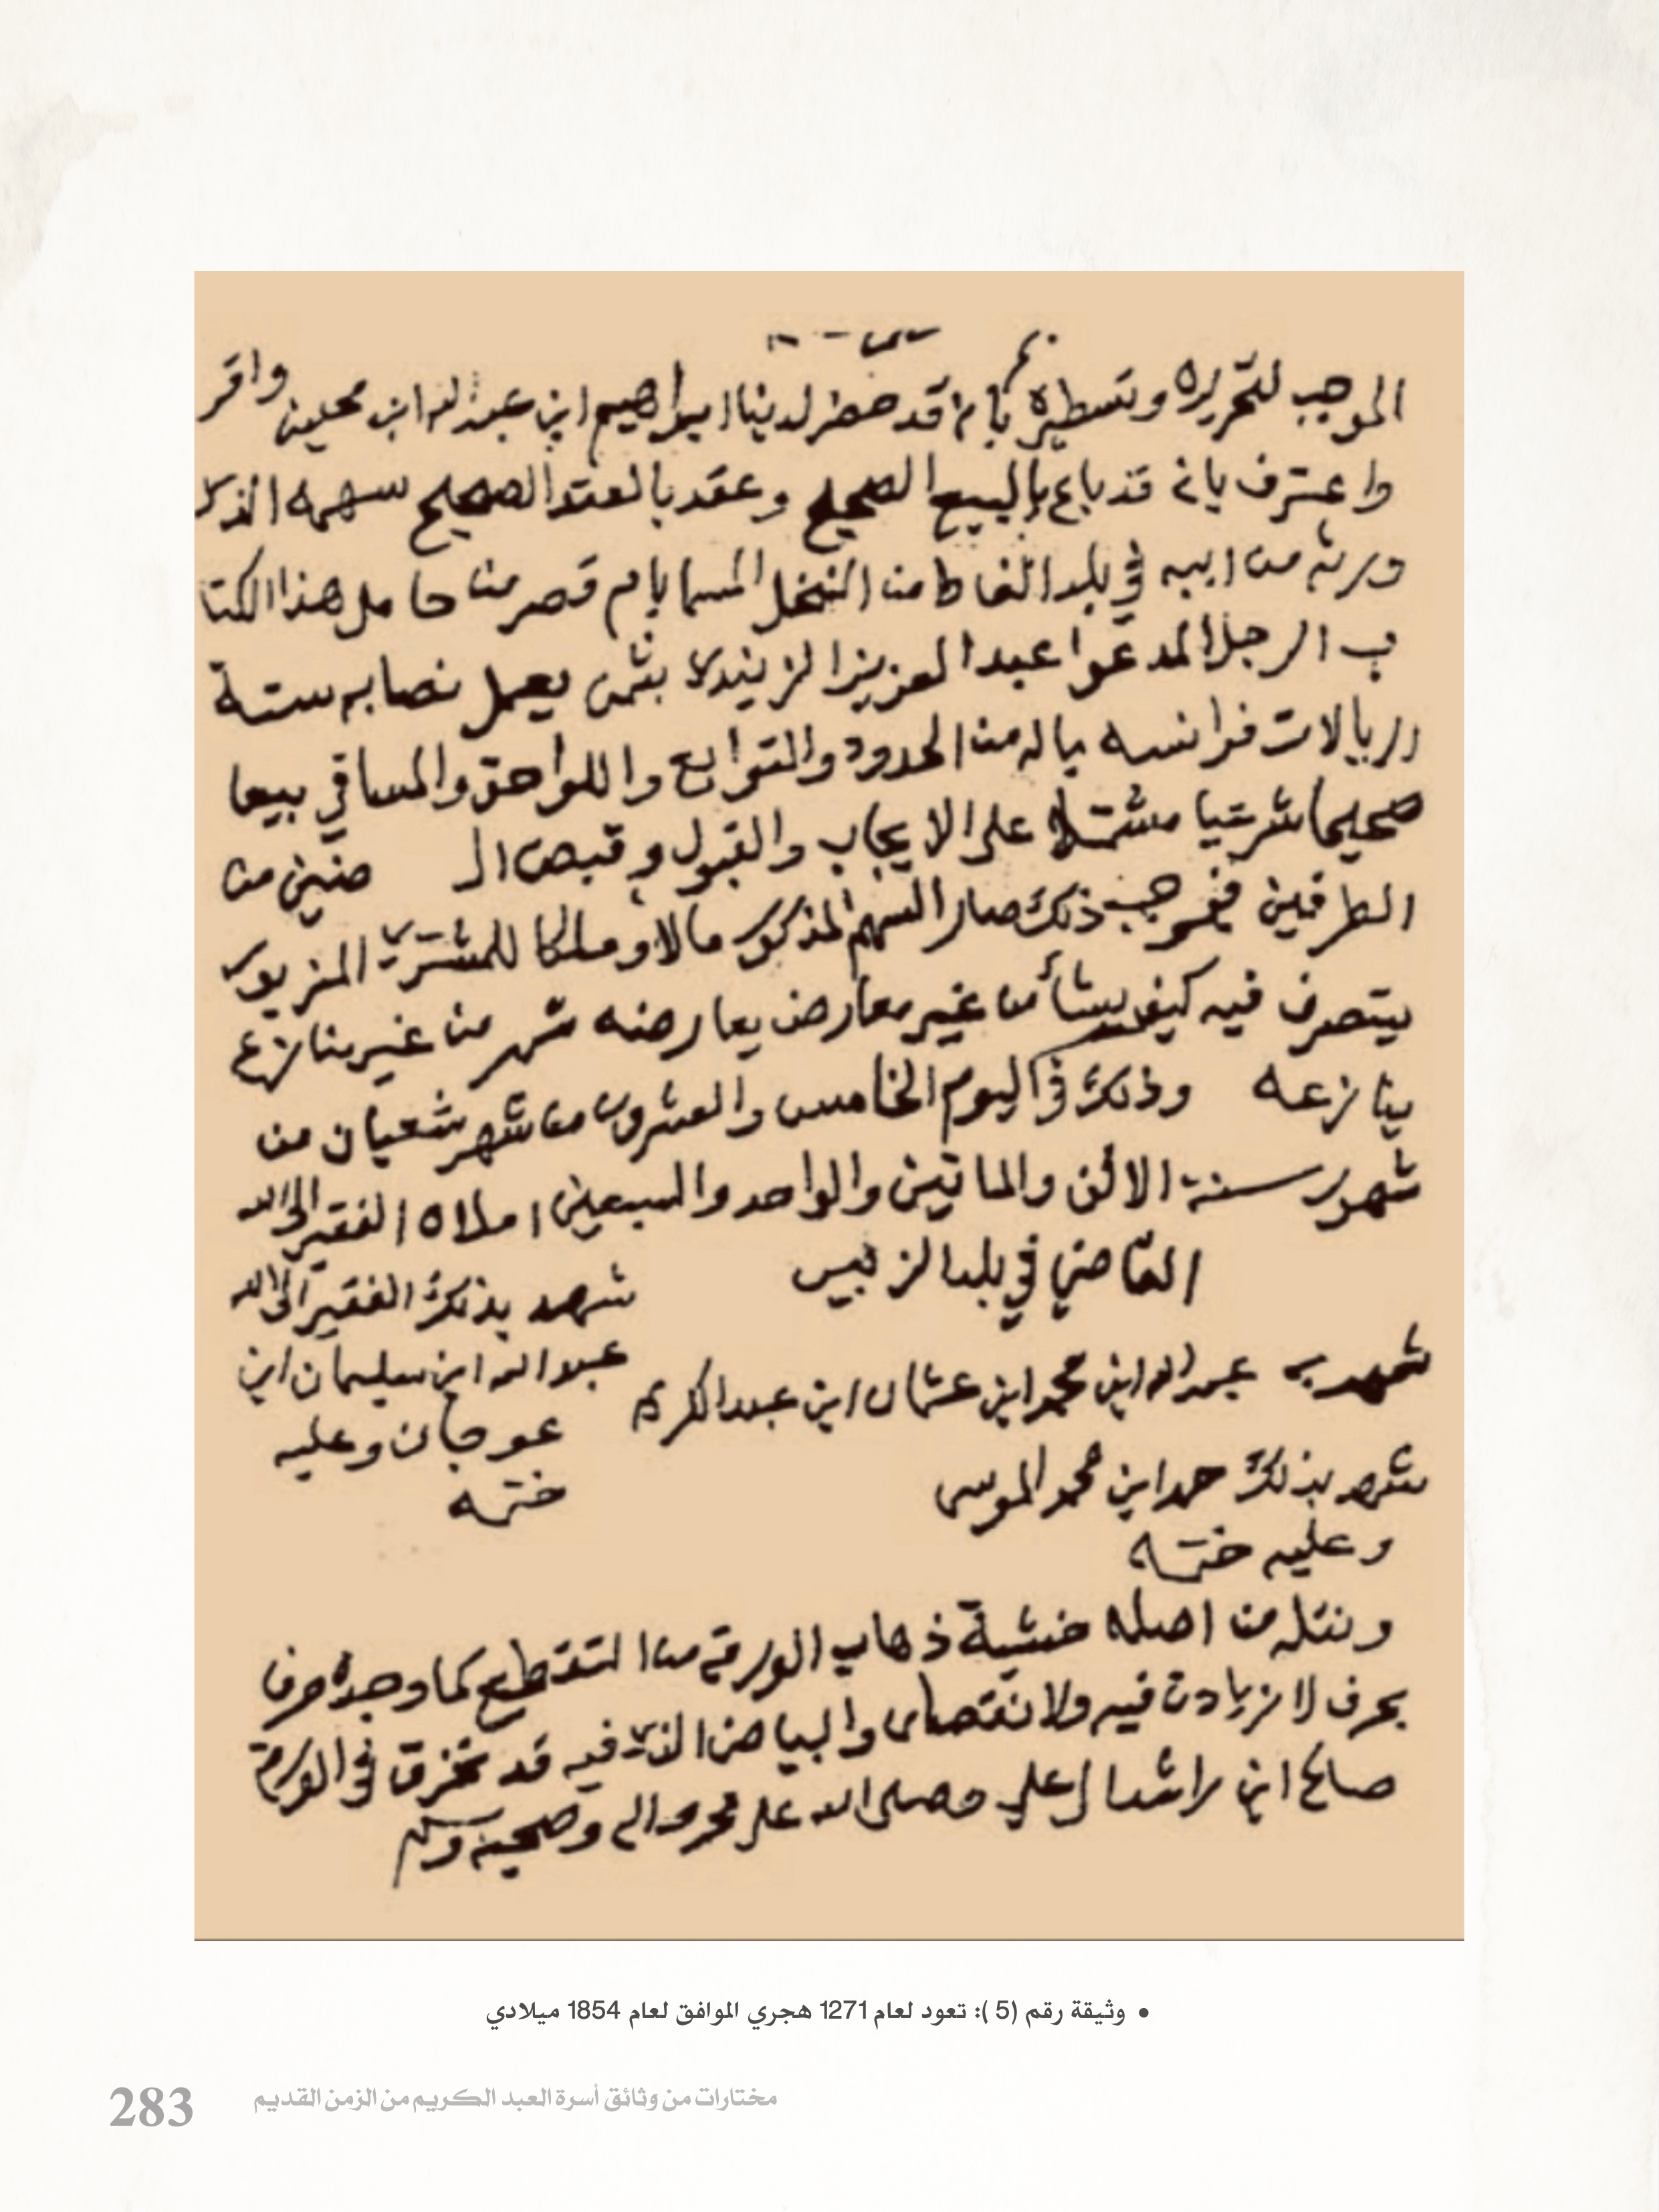 الموجب لتحريره وتسطيره بانه قد حضر لدينا ابراهيم ابن عبدالله ابن محيلين واقر
واعترف بانه قد باع بالبيع الصحيح وعقد بالعقد الصحيح سهمه الذي
ورثه من ابيه في بلد الغاط من النخل المسما بام قصر من حامل هذا الكتا
ب الرجل المدعوا عبدالعزيز الزيندي بثمن يعمل نصابه ستة
اريالات فرانسه بماله من الحدود والتوابع واللواحق والمساقي بيعا
صحيحا شرعيا مشتملا على الايجاب والقبول وقبض ال ضنين من
الطرفين فبموجب ذلك صار السهم المذكور مالا وملكا للمشتري المزبور
يتصرف فيه كيف يشأ من غير معارض يعارضه من غير منازع
ينازعه وذلك في اليوم الخامس والعشرون من شهر شعبان من
شهور سنة الالف والماتين والواحد والسبعين املاه الفقير الى الله
القاضي في بلد الزبير
شهد به عبدالله ابن محمد ابن عثمان ابن عبدالكريم
شهد بذلك الفقير الى الله
عبدالله ابن سليمان ابن
عوجان وعليه
ختمه
شهد بذلك حمد ابن محمد الموسى
وعليه ختمه
ونقله من اصله خشية ذهاب الورقه من التقطيع كما وجده حرف
بحرف لا زيادة فيه ولا نقصان والبياض الذي فيه قد تخرق في الورقة
صالح ابن راشد ال علي وصلى الله على محمد واله وصحبه وسلم
• وثيقة رقم (5 ): تعود لعام 1271 هجري الموافق لعام 1854 ميلادي
مختارات من وثائق أسرة العبد الكريم من الزمن القديم
283